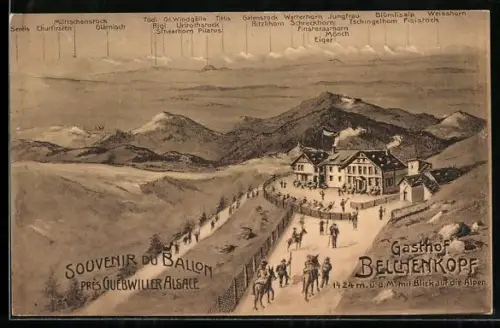 Mürtschenstock Tödi Gr. Windgälle Titlis Galenstock Wetterhorn Jungfrau Blümlisalp Weisshorn
Sentis Churfirsten Glärnisch Rigi Urirothstock Ritzlihorn Schreckhorn Tschingelhorn
Pilatus Finsteraarhorn
Mönch
Eiger
SOUVENIR DU BALLON
PRÈS GUEBWILLER ALSACE
Gasthof
BELCHENKOPF
1424 m. ü. d. M. mit Blick auf die Alpen